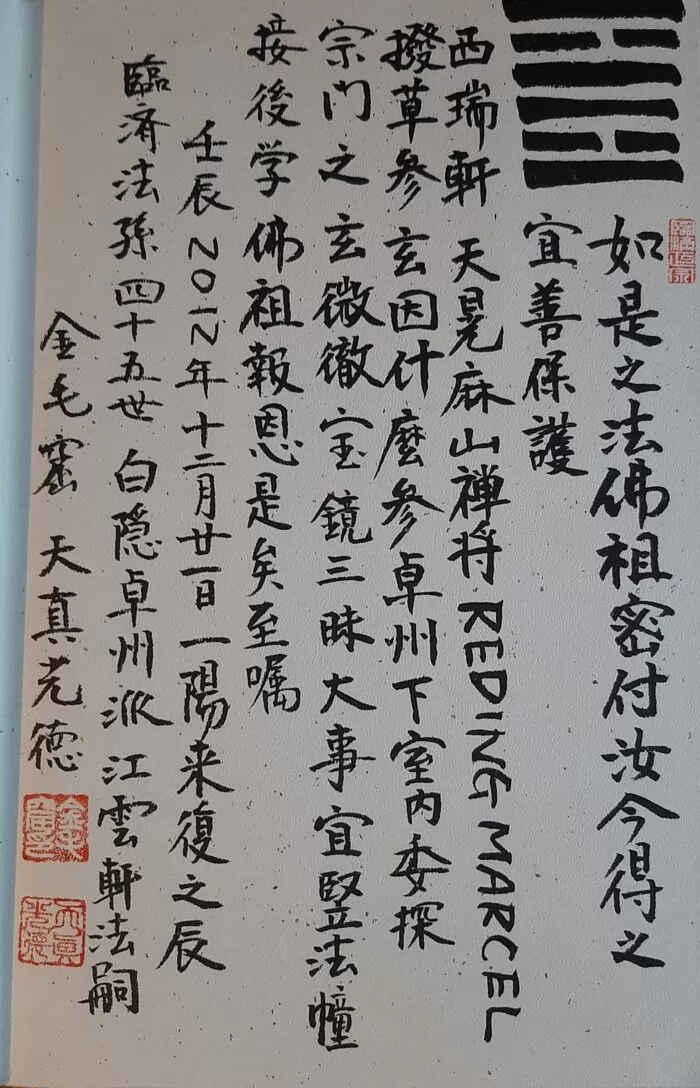 如是之法佛祖密付汝今得之
宜善保護
西瑞軒 天晃麻山禅将 REDING MARCEL
撥草参玄因什麼参卓州下室内委探
宗門之玄微徹宝鏡三昧大事宜竪法幢
接後学佛祖報恩是矣至嘱
壬辰2012年十二月廿一日一陽来復之辰
臨済法孫四十五世 白隠卓州派 江雲軒法嗣
金毛窟 天真光徳